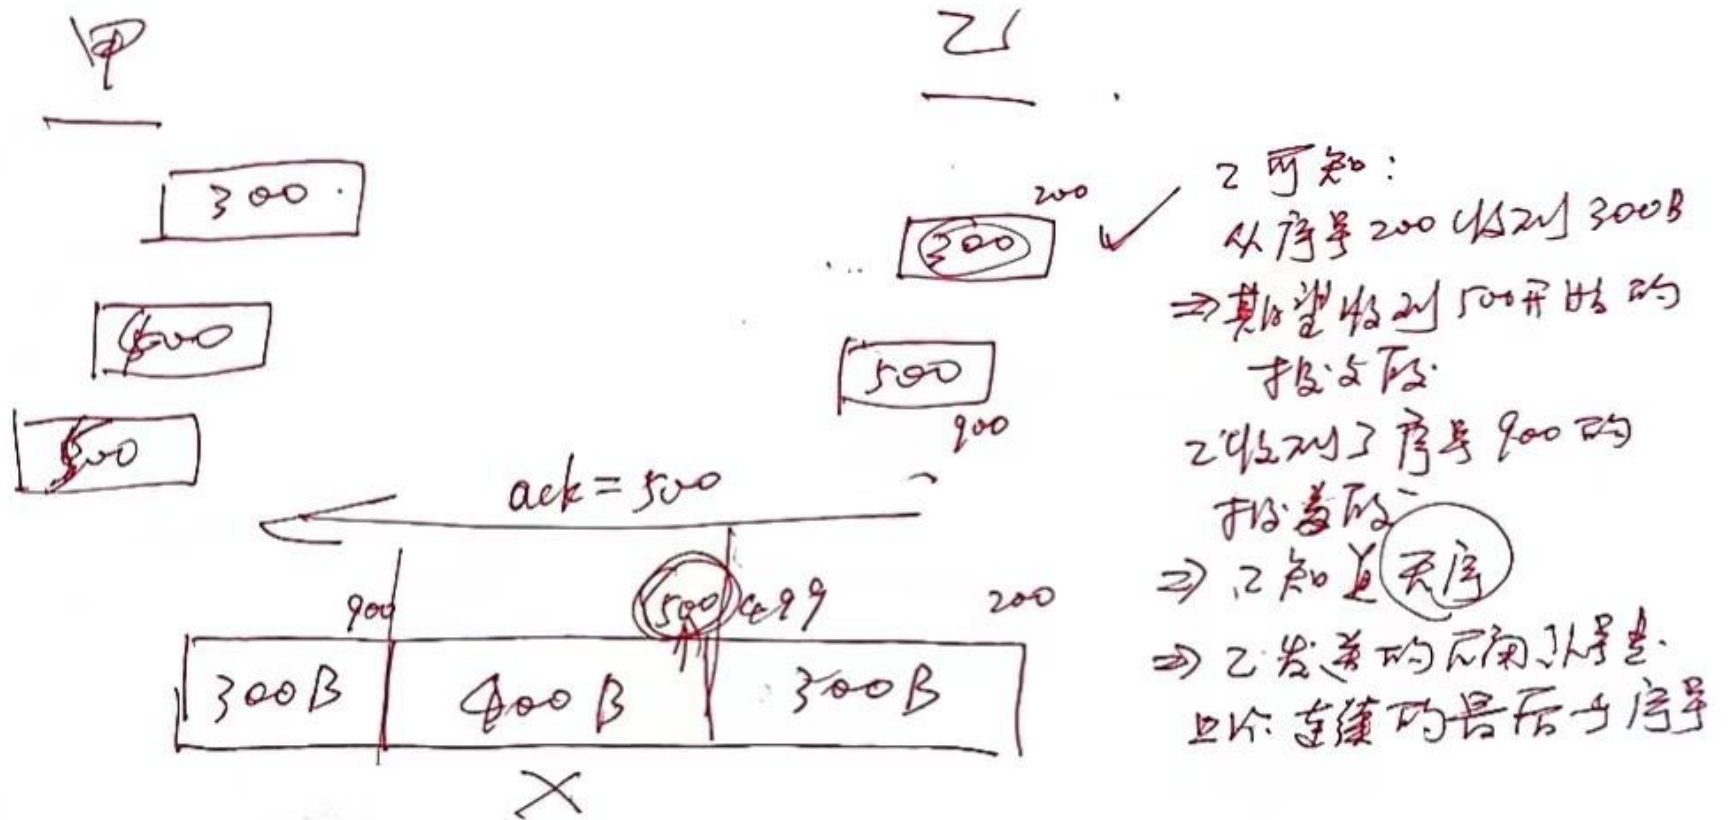 甲
乙
300
200
300
400
500
500
900
ack = 500
900
500
499
200
300B
400B
300B
X
乙可知:
从序号200收到300B
⇒期望收到500开始的
报文段
乙收到了序号900的
报文段
⇒乙知道失序
⇒乙发送的确认号是
连续的最后一个序号